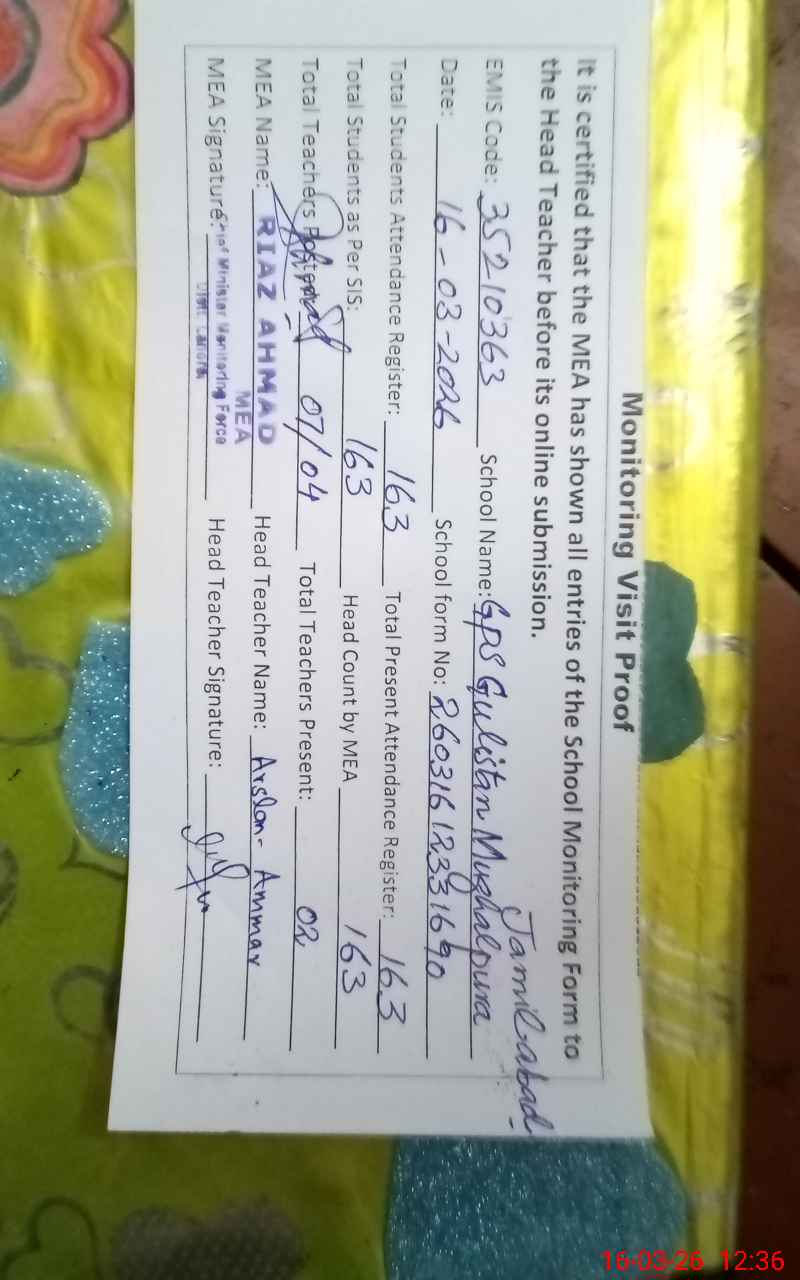 Monitoring Visit Proof
It is certified that the MEA has shown all entries of the School Monitoring Form to
the Head Teacher before its online submission.
Jamilabad
EMIS Code: 35210363 School Name: GPS Gulistan Mughalpura
Date: 16-03-2026 School form No: 260316123331690
Total Students Attendance Register: 163 Total Present Attendance Register: 163
Total Students as Per SIS: 163 Head Count by MEA 163
Total Teachers Posted: 07/04 Total Teachers Present: 02
MEA Name: RIAZ AHMAD Head Teacher Name: Arslan- Ammar
MEA
MEA Signature: Chief Minister Monitoring Force Head Teacher Signature:
16-03-26 12:36